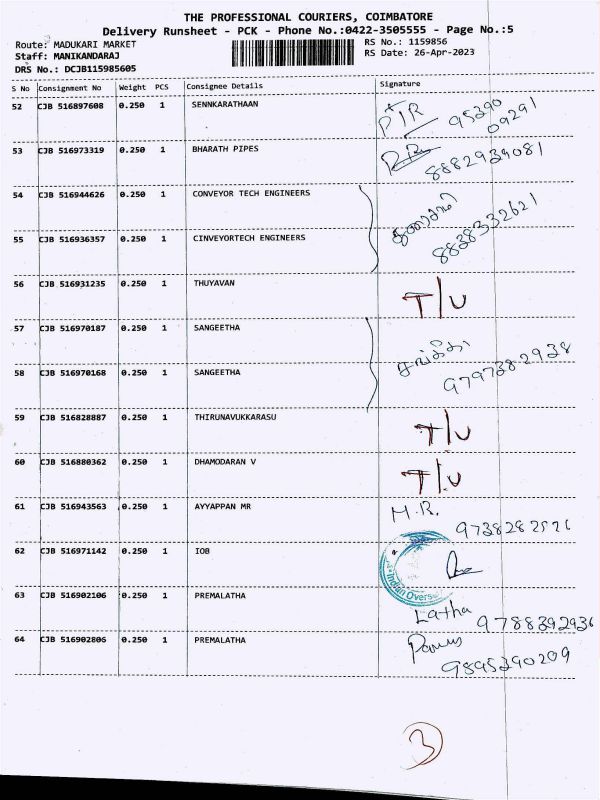 THE PROFESSIONAL COURIERS, COIMBATORE
Delivery Runsheet - PCK - Phone No.:0422-3505555 - Page No.:5
Route: MADUKARI MARKET RS No.: 1159856
Staff: MANIKANDARAJ RS Date: 26-Apr-2023
DRS No.: DCJB115985605
S No Consignment No Weight PCS Consignee Details Signature
52 CJB 516897608 0.250 1 SENNKARATHAAN 95390
09291
53 CJB 516973319 0.250 1 BHARATH PIPES 8882939081
54 CJB 516944626 0.250 1 CONVEYOR TECH ENGINEERS
55 CJB 516936357 0.250 1 CINVEYORTECH ENGINEERS 8838332621
56 CJB 516931235 0.250 1 THUYAVAN T/U
57 CJB 516970187 0.250 1 SANGEETHA சங்கீதா
58 CJB 516970168 0.250 1 SANGEETHA 9797382938
59 CJB 516828887 0.250 1 THIRUNAVUKKARASU T/U
60 CJB 516880362 0.250 1 DHAMODARAN V T/U
61 CJB 516943563 0.250 1 AYYAPPAN MR M.R.
62 CJB 516971142 0.250 1 IOB Indian Overs
63 CJB 516902106 0.250 1 PREMALATHA Latha 9788392936
64 CJB 516902806 0.250 1 PREMALATHA 9895390209
3